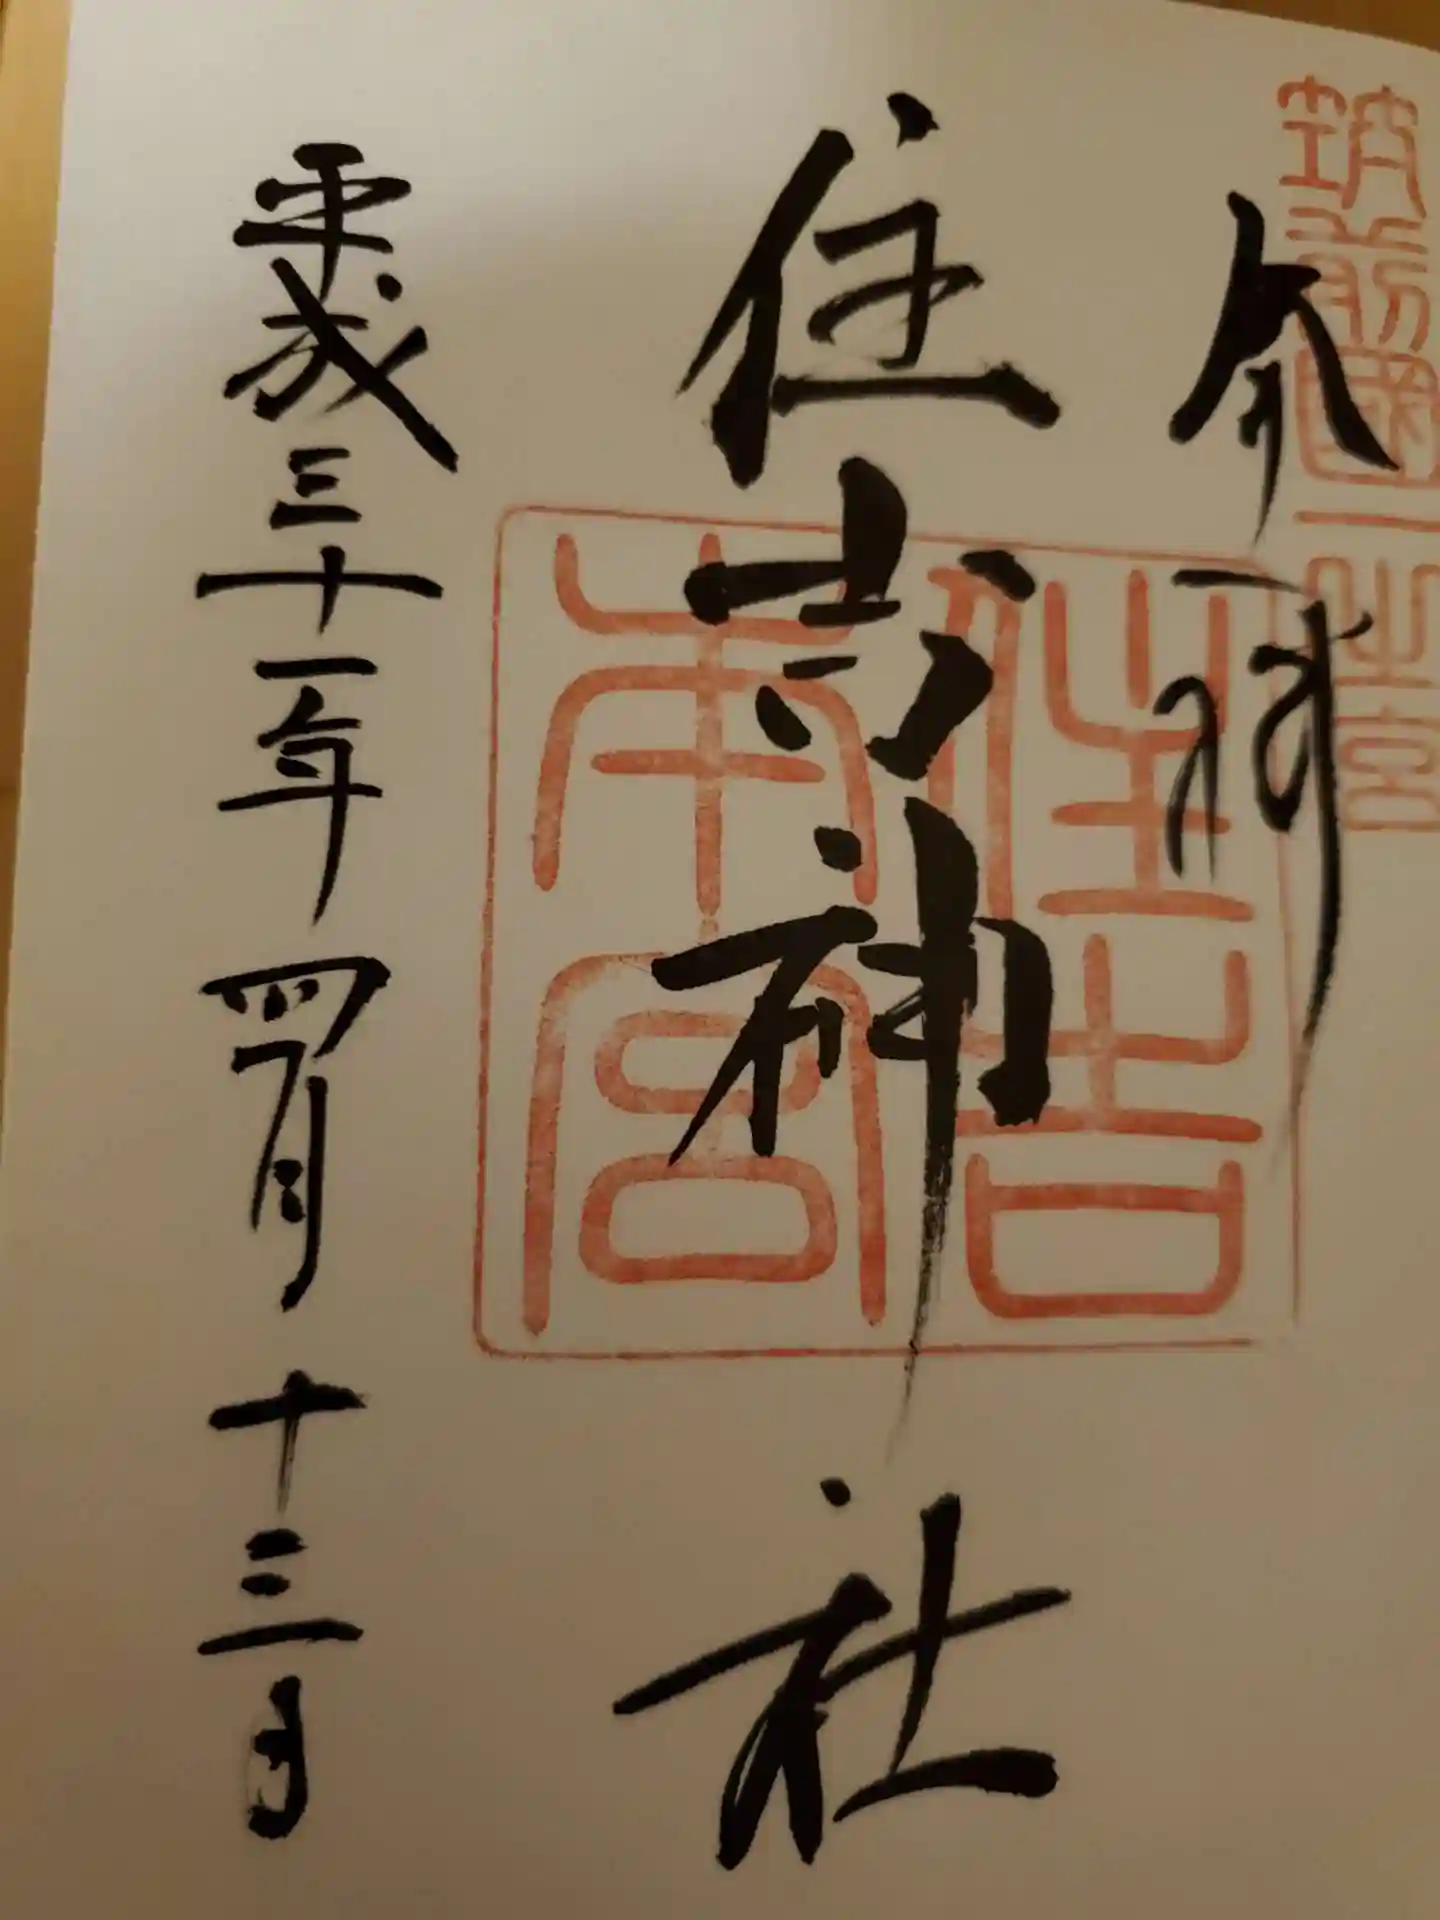 筑前國一之宮
奉拝
住吉神社
住吉
本宮
平成三十一年四月十三日